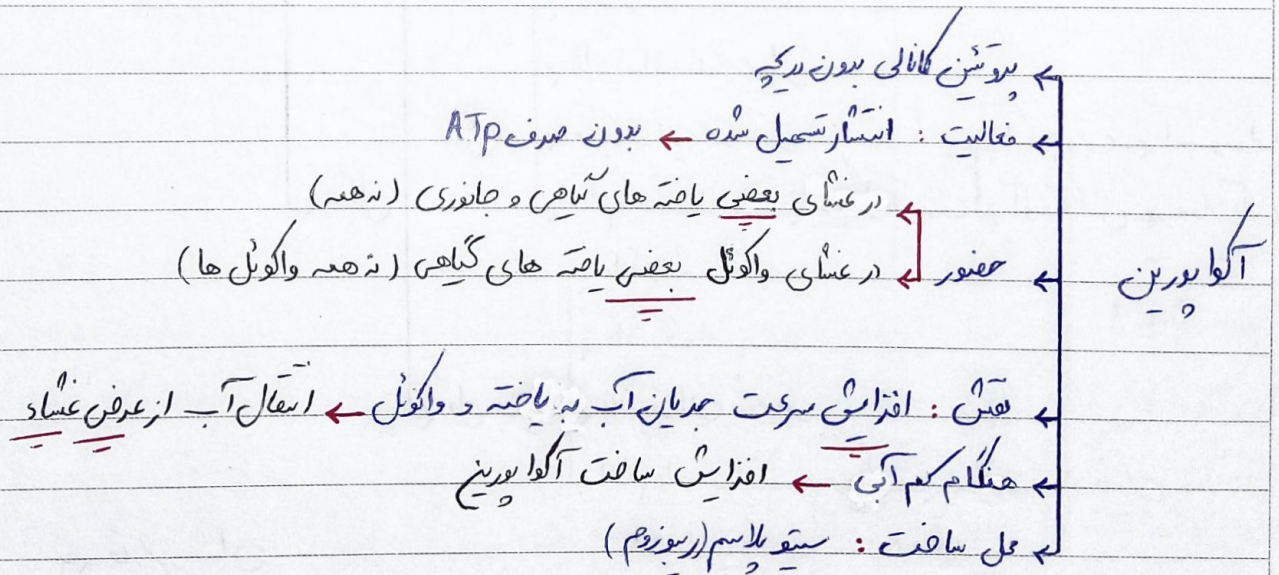 آکواپورین
← پروتئین کانالی بدون دریچه
← فعالیت : انتشار تسهیل شده ← بدون صرف ATP
← حضور ← در غشای بعضی یاخته های گیاهی و جانوری (نه همه)
← در غشای واکوئل بعضی یاخته های گیاهی (نه همه واکوئل ها)
← نقش : افزایش سرعت جریان آب به یاخته و واکوئل ← انتقال آب از عرض غشاء
← هنگام کم آبی ← افزایش ساخت آکواپورین
← محل ساخت : سیتوپلاسم (ریبوزوم)